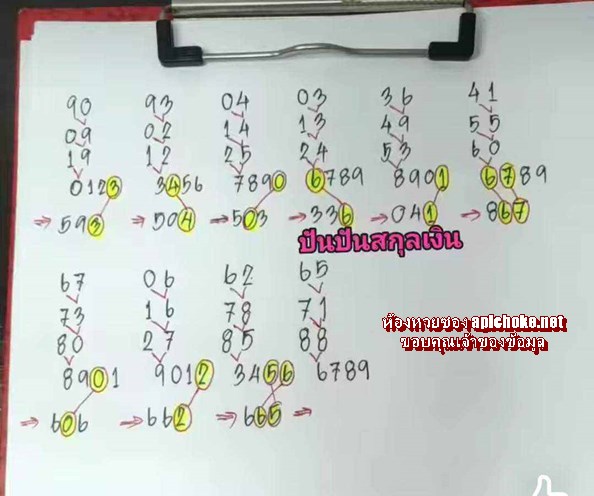 90 93 04 03 36 41
09 02 14 13 49 55
19 12 25 24 53 60
0123 3456 7890 6789 8901 6789
⇒ 593 ⇒ 504 ⇒ 503 ⇒ 336 ⇒ 041 ⇒ 867
ปันปันสกุลเงิน
67 06 62 65
73 16 78 71
80 27 85 88
8901 9012 3456 6789
⇒ 606 ⇒ 662 ⇒ 665 ⇒
ห้องหวยซอง apichoke.net
ขอบคุณเจ้าของข้อมูล